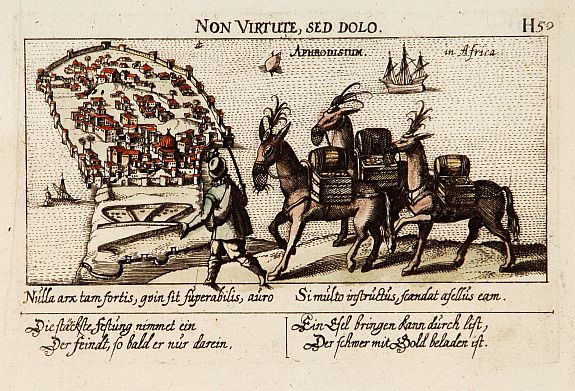 NON VIRTUTE, SED DOLO. H59
APHRODISIUM in Africa
Nulla arx tam fortis, qvin sit superabilis, auro Si multo instructus, scandat asellus eam.
Die stäckste festung nimmet ein
Der feindt, so bald er nur darein,
Ein Esel bringen kann durch list,
Der schwer mit Gold beladen ist.